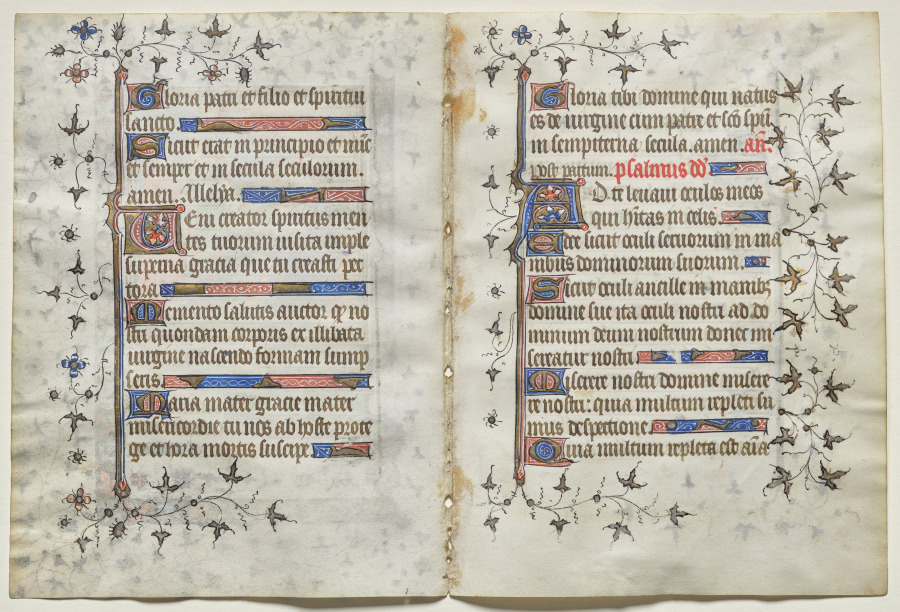 Gloria patri et filio et spiritui
sancto.
Sicut erat in principio et nūc
et semper et in secula seculorum.
amen. Alleluya.
Ueni creator spiritus men
tes tuorum visita imple
superna gracia que tu creasti pec
tora.
Memento salutis auctor qͥ no
stri quondam corporis ex illibata
virgine nascendo formam sump
seris.
Maria mater gracie mater
misericordie tu nos ab hoste prote
ge et hora mortis suscipe.
Gloria tibi domine qui natus
es de virgine cum patre et sc̄o spū
in sempiterna secula. amen. añ.
post partum. psalmus dd̄
Ad te levavi oculos meos
qui hītas in celis.
Ecce sicut oculi servorum in ma
nibus dominorum suorum.
Sicut oculi ancille in manibꝫ
domine sue ita oculi nostri ad do
minum deum nostrum donec mi
sereatur nostri.
Miserere nostri domine misere
re nostri: quia multum repleti su
mus despectione.
Quia multum repleta est aīa